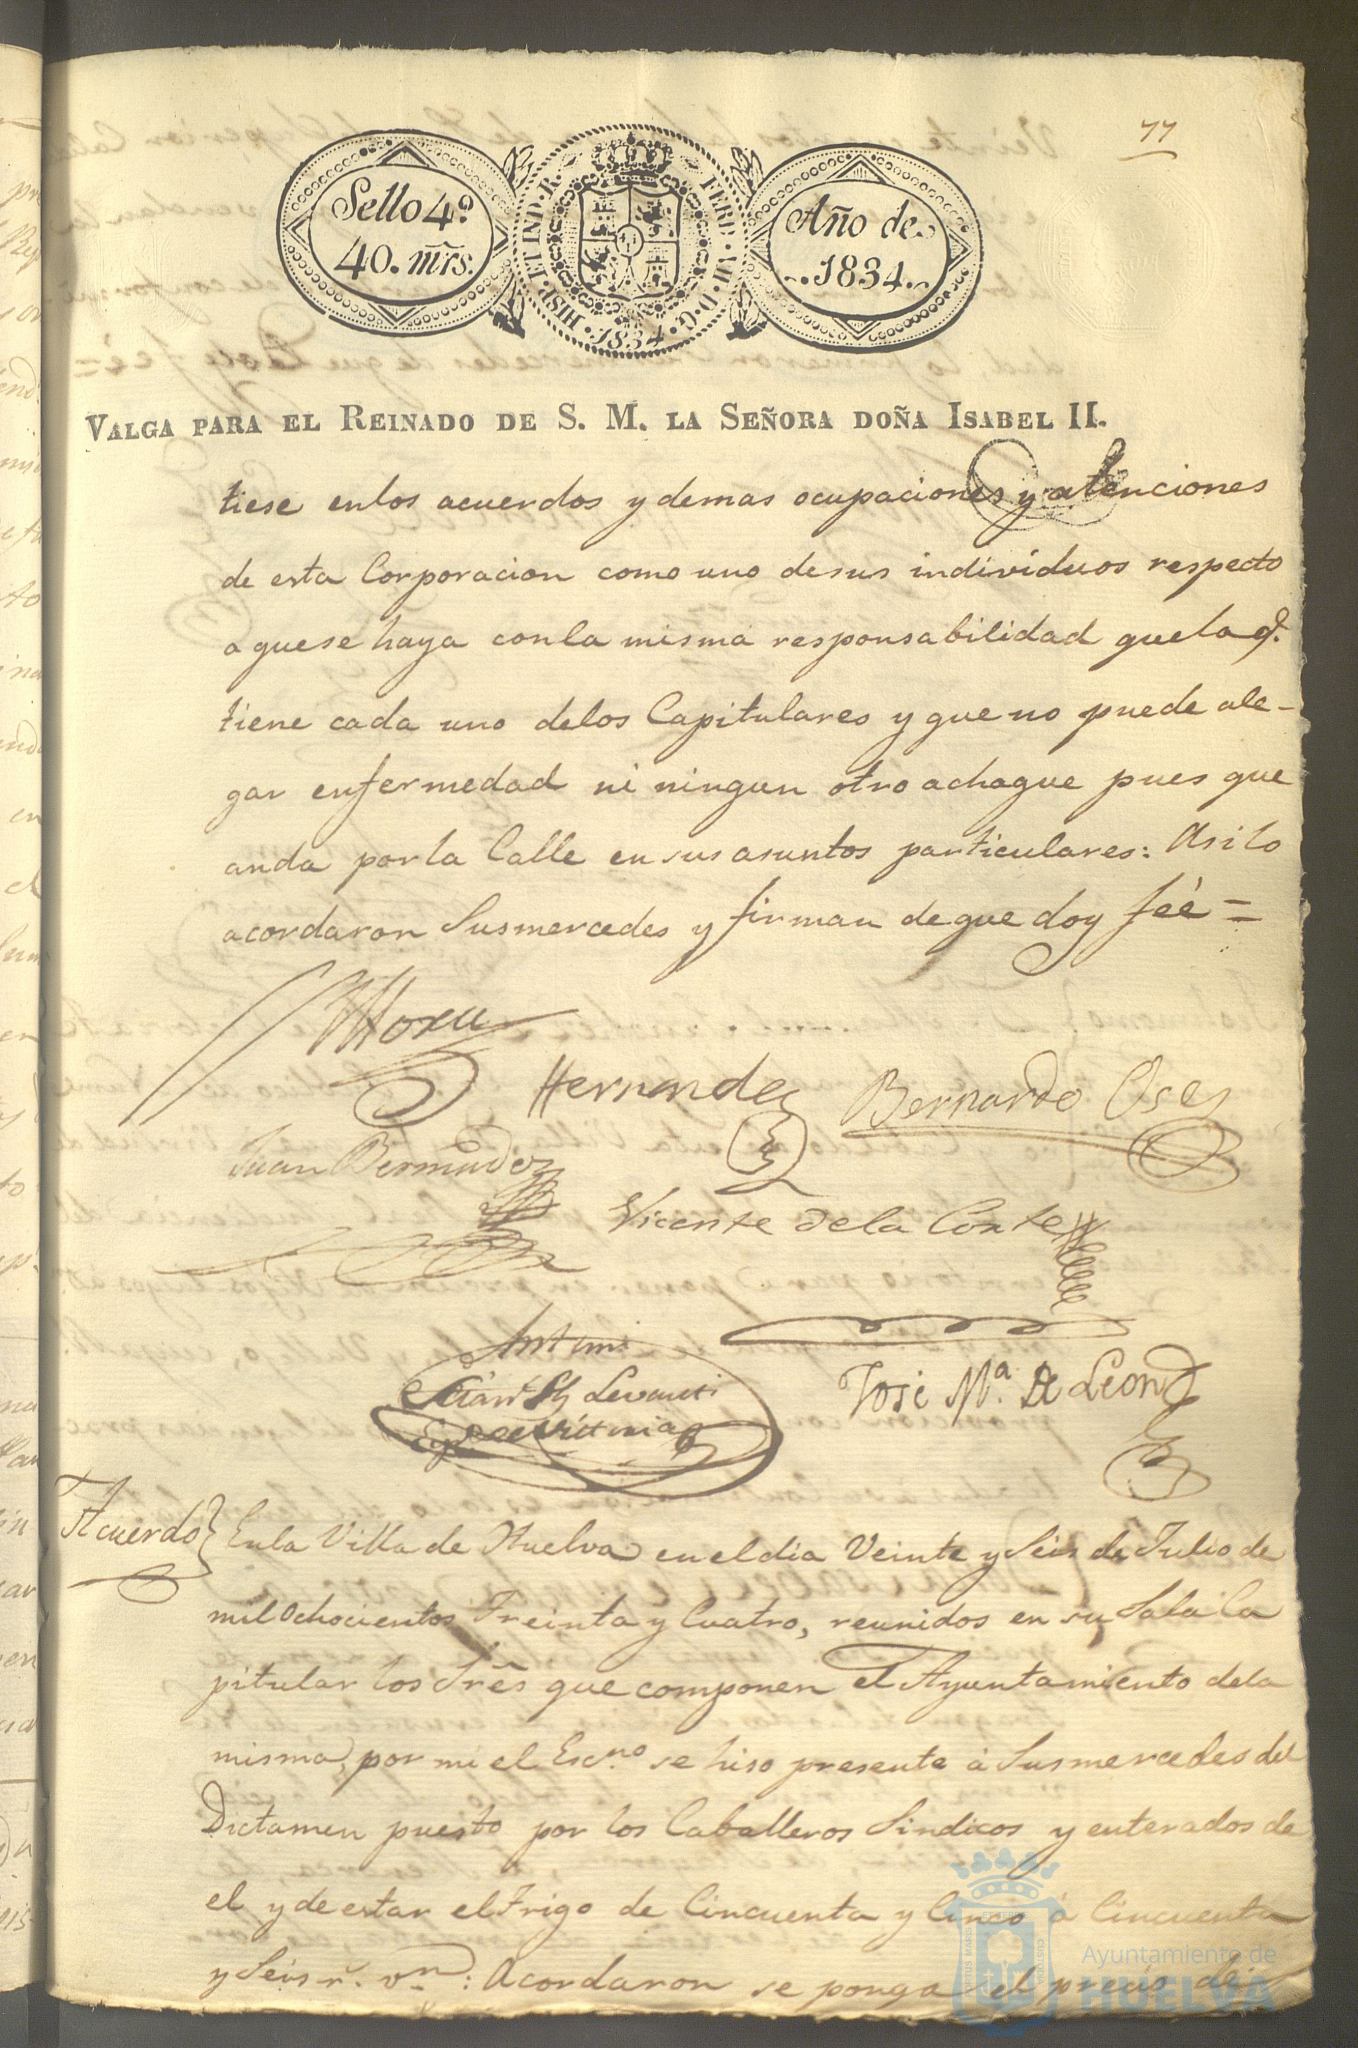 77
Sello 4º
40. mrs.
HISP. ET IND. R. FERD. VII. D. G. 1834
Año de
1834
VALGA PARA EL REINADO DE S. M. LA SEÑORA DOÑA ISABEL II.
tiese enlos acuerdos y demas ocupaciones y atenciones
de esta Corporacion como uno desus individuos respecto
aquese haya conla misma responsabilidad quela q.
tiene cada uno delos Capitulares y que no puede ale-
gar enfermedad ni ningun otro achaque pues que
anda porla Calle en sus asuntos particulares: Asilo
acordaron Susmercedes y firman deque doy feé =
Mora
Hernandez
Bernardo Oses
Juan Bermudez
Vicente dela Corte
Antemi
José Mª. De Leon
Acuerdo
Enla Villa de Huelva en el dia Veinte y Seis de Julio de
mil ochocientos Treinta y Cuatro, reunidos en su Sala Ca
pitular los Sres que componen el Ayuntamiento dela
misma, por mi el Escno. se hiso presente á Susmercedes del
Dictamen puesto por los Caballeros Sindicos y enterados de
el y de estar el Trigo de Cincuenta y Cinco á Cincuenta
y Seis r. vn: Acordaron se ponga el precio de
Ayuntamiento de
HUELVA